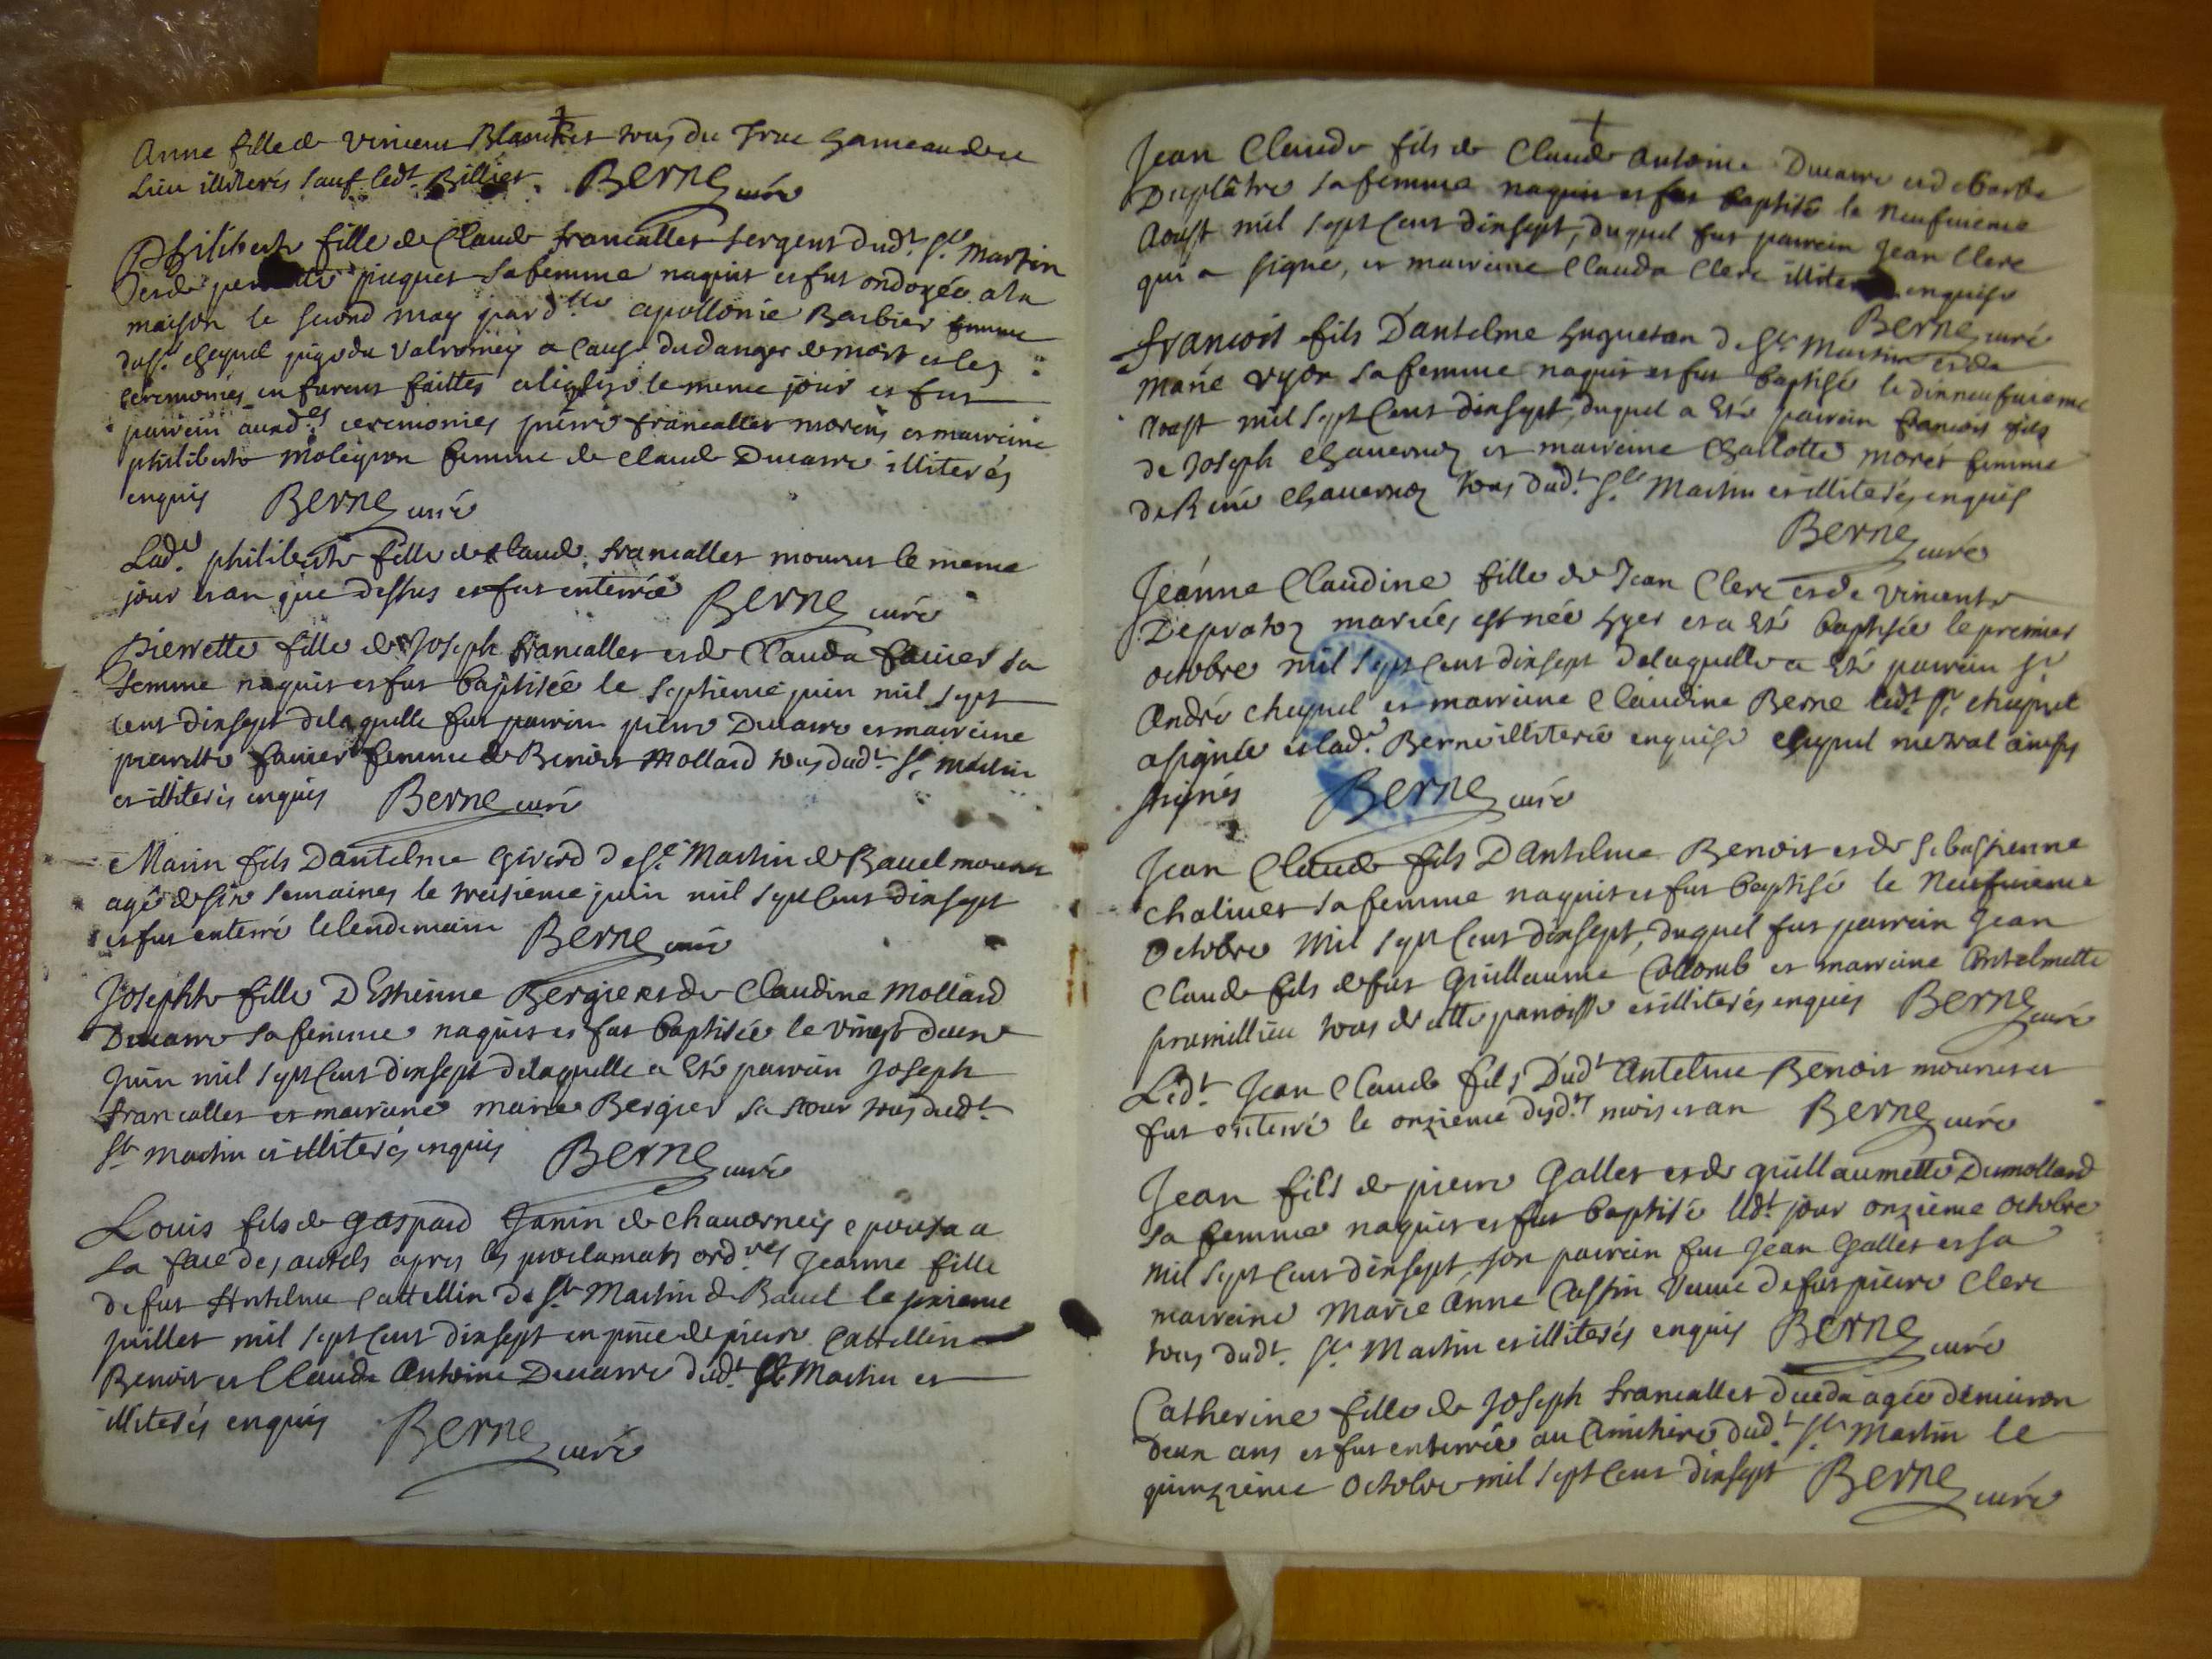 Anne fille de Vincent Blanchet tous du Truc hameau de ce
Lieu illiterés sauf led.t Billiet. Berne curé
Philiberte fille de Claude francallet sergent dud.t St Martin
et de piquet sa femme naquit et fut ondoyée a la
maison le second may par d.lle apollonie Barbier femme
du Sr chapuel juge du Valromey a cause du danger de mort et les
ceremonies en furent faittes a l'église le meme jour et fut
parrein auxd.es ceremonies pierre francallet morens et marreine
philiberte molignon femme de Claude Ducarre illiterés
enquis Berne curé
Lad.e philiberte fille de Claude francallet mourut le meme
jour et an que dessus et fut enterrée Berne curé
Pierrette fille de Joseph francallet et de Clauda favier sa
femme naquit et fut baptisée le septieme juin mil sept
cent dixsept delaquelle fut parrein pierre Ducarre et marreine
pierrette favier femme de Benoit Mollard tous dud.t St Martin
et illiterés enquis Berne curé
Marin fils D'antelme Girerd de St Martin de Bavel mourut
agé de six semaines le treisieme juin mil sept cent dixsept
et fut enterré le lendemain Berne curé
Josephte fille D'Estienne Bergier et de Claudine Mollard
Ducarre sa femme naquit et fut baptisée le vingt deux
Juin mil sept cent dixsept delaquelle a esté parrein Joseph
francallet et marreine marie Bergier sa soeur tous dud.t
St Martin et illiterés enquis Berne curé
Louis fils de gaspard Janin de chavorney epousa a
la face des autels apres les proclamats ord.res Jeanne fille
de fut Antelme Cattellin de St Martin de Bavel le
juillet mil sept cent dixsept en pnce de pierre Cattellin
Benoit et Claude Antoine Ducarre dud.t St Martin et
illiterés enquis Berne curé
Jean Claude fils de Claude Antoine Ducarre et de Barbe
Duplâtre sa femme naquit et fut baptisé le neufvieme
Aoust mil sept cent dixsept, duquel fut parrein Jean Clerc
qui a signé, et marreine Clauda Clerc enquise
Berne curé
francois fils D'antelme huguetan de St Martin et de
Marie vyon sa femme naquit et fut baptisé le dixneufvieme
Aoust mil sept cent dixsept, duquel a esté parrein francois fils
de Joseph Chavernoz et marreine Charlotte moret femme
de René Chavernoz tous dud.t St Martin et illiterés enquis
Berne curé
Jeanne Claudine fille de Jean Clerc et de vincente
Depratoz mariés est née hyer et a esté baptisée le premier
octobre mil sept cent dixsept delaquelle a esté parrein Sr
André chapuel et marreine Claudine Berne led.t Sr chapuel
a signée et lad.e Berne illiterée enquise
signés Berne curé
Jean Claude fils D'Antelme Benoit et de Sebastienne
chalivet sa femme naquit et fut baptisé le neufvieme
Octobre mil sept cent dixsept, duquel fut parrein Jean
Claude fils de fut guillaume Collomb et marreine Antelmette
premillieu tous de cette paroisse et illiterés enquis Berne curé
Led.t Jean Claude fils Dud.t Antelme Benoit mourut et
fut enterré le onzieme desd.ts mois et an Berne curé
Jean fils de pierre Gallet et de guillaumette Dumollard
sa femme naquit et fut baptisé led.t jour onzieme octobre
mil sept cent dixsept, son parrein fut Jean Gallet et sa
marreine Marie Anne Castin veuve de fut pierre Clerc
tous dud.t St Martin et illiterés enquis Berne curé
Catherine fille de Joseph francallet agée d'environ
deux ans et fut enterrée au Cimitiere dud.t St Martin le
quinzieme Octobre mil sept cent dixsept Berne curé